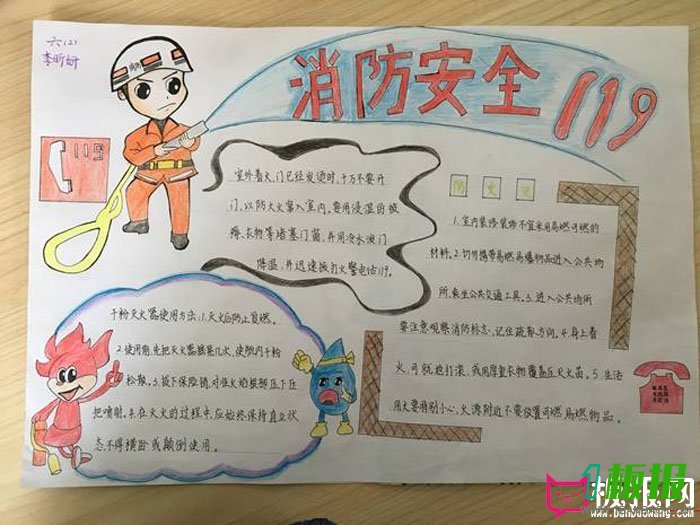 六(2)
李昕妍
消防安全119
119
室外着火,门已经发烫时,千万不要开
门,以防大火窜入室内。要用浸湿的被
褥、衣物等堵塞门窗,并用冷水泼门
降温,并迅速拨打火警电话119。
防火灾
1.室内装修装饰不宜采用易燃可燃的
材料。2.切勿携带易燃易爆物品进入公共场
所、乘坐公共交通工具。3.进入公共场所
要注意观察消防标志,记住疏散方向。4.身上着
火,可就地打滚,或用厚重衣物覆盖压灭火苗。5.生活
用火要特别小心,火源附近不要放置可燃易燃物品。
干粉灭火器使用方法:1.灭火后防止复燃。
2.使用前,先把灭火器摇晃几次,使瓶内干粉
松散。3.拔下保险销,对准火焰根部压下压
把喷射。4.在灭火的过程中,应始终保持直立状
态不得横卧或颠倒使用。
板报网
www.banbaowang.com